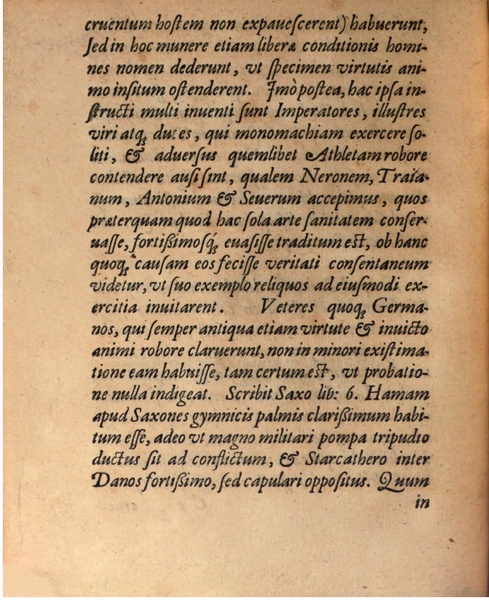 cruentum hoſtem non expaueſcerent) habuerunt,
ſed in hoc munere etiam liberæ conditionis homi-
nes nomen dederunt, vt ſpecimen virtutis ani-
mo inſitum oſtenderent. Jmò poſtea, hac ipſa in-
ſtructi multi inuenti ſunt Imperatores, illuſtres
viri atq́; duces, qui monomachiam exercere ſo-
liti, & aduerſus quemlibet Athletam robore
contendere auſi ſint, qualem Neronem, Traia-
num, Antonium & Seuerum accepimus, quos
præterquam quod hac ſola arte ſanitatem conſer-
uaſſe, fortißimoſq́; euaſiſſe traditum eſt, ob hanc
quoq́; cauſam eos feciſſe veritati conſentaneum
videtur, vt ſuo exemplo reliquos ad eiuſmodi ex-
ercitia inuitarent. Veteres quoq́; Germa-
nos, qui ſemper antiqua etiam virtute & inuicto
animi robore claruerunt, non in minori exiſtima-
tione eam habuiſſe, tam certum eſt, vt probatio-
ne nulla indigeat. Scribit Saxo lib: 6. Hamam
apud Saxones gymnicis palmis clarißimum habi-
tum eſſe, adeo vt magno militari pompa tripudio
ductus ſit ad conflictum, & Starcathero inter
Danos fortißimo, ſed capulari oppoſitus. Quum
in